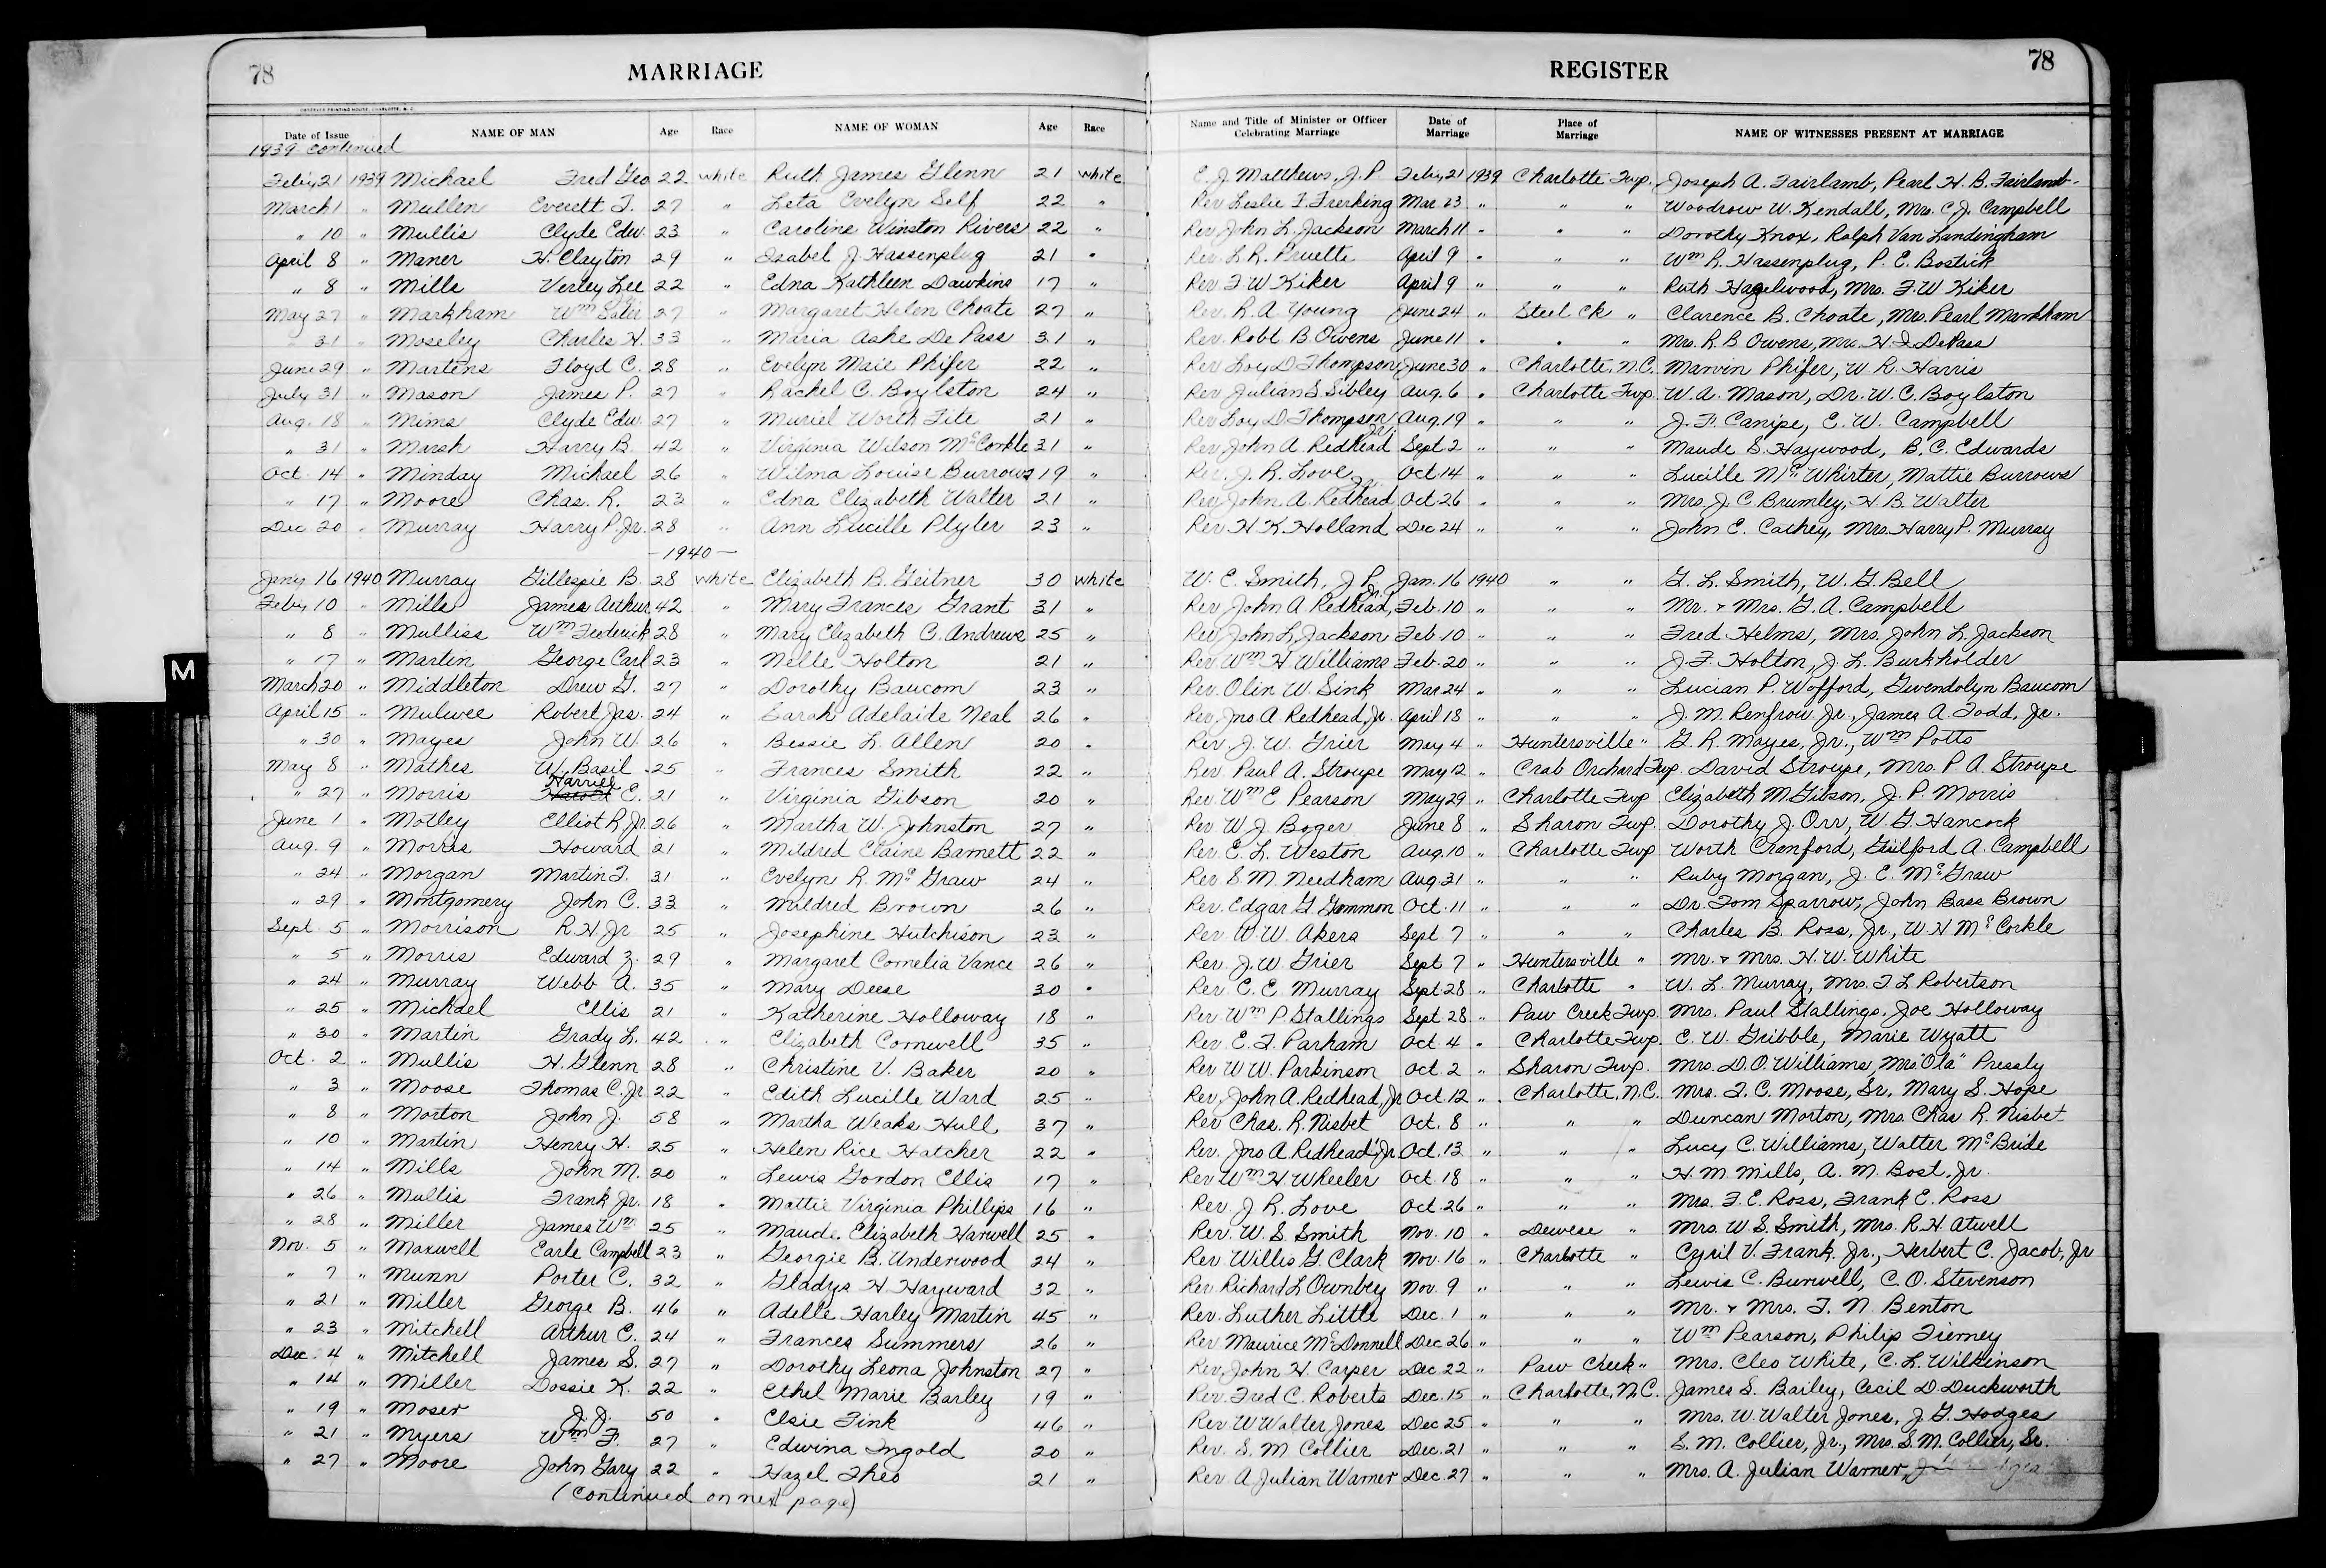 78 MARRIAGE REGISTER 78
OBSERVER PRINTING HOUSE, CHARLOTTE, N. C.
Date of Issue NAME OF MAN Age Race NAME OF WOMAN Age Race Name and Title of Minister or Officer Celebrating Marriage Date of Marriage Place of Marriage NAME OF WITNESSES PRESENT AT MARRIAGE
1939 continued
Feby 21 1939 Michael Fred Geo 22 White Ruth James Glenn 21 White E. J. Matthews, J. P. Feby 21 1939 Charlotte Twp. Joseph A. Fairlamb, Pearl H. B. Fairlamb
March 1 " Mullen Everett T. 27 " Leta Evelyn Self 22 " Rev Leslie F. Frerking Mar. 23 " " " Woodrow W. Kendall, Mrs. C. J. Campbell
" 10 " Mullis Clyde Edw. 23 " Caroline Winston Rivers 22 " Rev John L. Jackson March 11 " " " Dorothy Knox, Ralph Van Landingham
April 8 " Maner H. Clayton 29 " Isabel J. Hassenplug 21 " Rev L. R. Pruette April 9 " " " Wm R. Hassenplug, P. E. Bostick
" 8 " Mills Verley Lee 22 " Edna Kathleen Dawkins 17 " Rev F. W Kiker April 9 " " " Ruth Hazelwood, Mrs. F. W Kiker
May 27 " Markham Wm 27 " Margaret Helen Choate 27 " Rev. R. A Young June 24 " Steel Ck " Clarence B. Choate, Mrs. Pearl Markham
" 31 " Moseley Charles H. 33 " Maria Ashe De Pass 31 " Rev. Robt B. Owens June 11 " " " Mrs. R. B Owens, Mrs. H. I. DePass
June 29 " Martens Floyd C. 28 " Evelyn Maie Phifer 22 " Rev Loy D Thompson June 30 " Charlotte, N.C. Marvin Phifer, W. R. Harris
July 31 " Mason James P. 27 " Rachel C. Boylston 24 " Rev Julian S Sibley Aug. 6 " Charlotte Twp W. A. Mason, Dr. W. C. Boylston
Aug. 18 " Mims Clyde Edw. 27 " Muriel Worth Fite 21 " Rev Loy D Thompson Aug. 19 " " " J. F. Canipe, E. W. Campbell
" 31 " Marsh Harry B. 42 " Virginia Wilson McCorkle 31 " Rev John A. Redhead Jr. Sept 2 " " " Maude S. Haywood, B. C. Edwards
Oct. 14 " Minday Michael 26 " Wilma Louise Burrows 19 " Rev. J. R. Love Oct 14 " " " Lucille McWhirter, Mattie Burrows
" 17 " Moore Chas. R. 23 " Edna Elizabeth Walter 21 " Rev John A. Redhead Jr. Oct 26 " " " Mrs. J. C. Brumley, H. B. Walter
Dec 20 " Murray Harry P. Jr. 28 " Ann Lucille Plyler 23 " Rev. H. K. Holland Dec 24 " " " John E. Cathey, Mrs. Harry P. Murray
— 1940 —
Jany 16 1940 Murray Gillespie B. 28 White Elizabeth B. Geitner 30 White W. E. Smith, J P. Jan. 16 1940 " " G. L. Smith, W. G. Bell
Feby 10 " Mills James Arthur 42 " Mary Frances Grant 31 " Rev John A. Redhead, Jr. Feb. 10 " " " Mr. & Mrs. G. A. Campbell
" 8 " Mulliss Wm Frederick 28 " Mary Elizabeth C. Andrews 25 " Rev John L. Jackson Feb 10 " " " Fred Helms, Mrs. John L. Jackson
" 17 " Martin George Carl 23 " Nelle Holton 21 " Rev Wm H Williams Feb. 20 " " " J. F. Holton, J. L. Burkholder
March 20 " Middleton Drew G. 27 " Dorothy Baucom 23 " Rev. Olin W. Sink Mar 24 " " " Lucian P. Wofford, Gwendolyn Baucom
April 15 " Mulwee Robert Jas. 24 " Sarah Adelaide Neal 26 " Rev. Jno A Redhead, Jr. April 18 " " " J. M. Renfrow Jr., James A. Todd, Jr.
" 30 " Mayes John W. 26 " Bessie L. Allen 20 " Rev. J. W. Grier May 4 " Huntersville " G. R. Mayes, Jr., Wm Potts
May 8 " Mathes W. Basil 25 " Frances Smith 22 " Rev Paul A. Stroupe May 12 " Crab Orchard Twp. David Stroupe, Mrs. P A. Stroupe
" 27 " Morris Harriel Harold E. 21 " Virginia Gibson 20 " Rev. Wm E Pearson May 29 " Charlotte Twp Elizabeth M. Gibson, J. P. Morris
June 1 " Motley Elliot R. Jr. 26 " Martha W. Johnston 27 " Rev W. J. Boger June 8 " Sharon Twp. Dorothy J. Orr, W. G. Hancock
Aug. 9 " Morris Howard 21 " Mildred Elaine Barnett 22 " Rev. E. L. Weston Aug. 10 " Charlotte Twp Worth Cranford, Guilford A. Campbell
" 24 " Morgan Martin T. 31 " Evelyn R. McGraw 24 " Rev. S. M. Needham Aug. 31 " " " Ruby Morgan, J. E. McGraw
" 29 " Montgomery John C. 33 " Mildred Brown 26 " Rev. Edgar G Gammon Oct. 11 " " " Dr. Tom Sparrow, John Bass Brown
Sept 5 " Morrison R. H. Jr 25 " Josephine Hutchison 23 " Rev W. W. Akers Sept 7 " " " Charles B. Ross, Jr., W H McCorkle
" 5 " Morris Edward Z. 29 " Margaret Cornelia Vance 26 " Rev. J. W. Grier Sept 7 " Huntersville " Mr. & Mrs. H. W. White
" 24 " Murray Webb A. 35 " Mary Deese 30 " Rev. C. E. Murray Sept 28 " Charlotte " W. L. Murray, Mrs. T L Robertson
" 25 " Michael Ellis 21 " Katherine Holloway 18 " Rev. Wm P. Stallings Sept 28 " Paw Creek Twp. Mrs. Paul Stallings, Joe Holloway
" 30 " Martin Grady L. 42 " Elizabeth Cornwell 35 " Rev. E. F. Parham Oct. 4 " Charlotte Twp. E. W. Gribble, Marie Wyatt
Oct. 2 " Mullis H. Glenn 28 " Christine V. Baker 20 " Rev W W. Parkinson Oct. 2 " Sharon Twp. Mrs. D. O. Williams, Mrs "Ola" Pressly
" 3 " Moose Thomas C. Jr 22 " Edith Lucille Ward 25 " Rev. John A. Redhead, Jr Oct. 12 " Charlotte, N.C. Mrs. T. C. Moose, Sr. Mary S. Hope
" 8 " Morton John J. 58 " Martha Weaks Hull 37 " Rev Chas. R. Nisbet Oct. 8 " " " Duncan Morton, Mrs. Chas R. Nisbet
" 10 " Martin Henry H. 25 " Helen Rice Hatcher 22 " Rev. Jno A. Redhead, Jr. Oct. 13 " " " Lucy C. Williams, Walter McBride
" 14 " Mills John M. 20 " Lewis Gordon Ellis 17 " Rev Wm H Wheeler Oct. 18 " " " H. M. Mills, A. M. Bost, Jr.
" 26 " Mullis Frank Jr. 18 " Mattie Virginia Phillips 16 " Rev. J. R. Love Oct. 26 " " " Mrs. F. E. Ross, Frank E. Ross
" 28 " Miller James Wm 25 " Maude Elizabeth Harwell 25 " Rev. W. S. Smith Nov. 10 " Dewese " Mrs. W. S. Smith, Mrs. R. H. Atwell
Nov. 5 " Maxwell Earle Campbell 23 " Georgie B. Underwood 24 " Rev Willis G. Clark Nov. 16 " Charlotte " Cyril V. Frank, Jr., Herbert C. Jacob, Jr
" 7 " Munn Porter C. 32 " Gladys H. Hayward 32 " Rev Richard L Ownbey Nov. 9 " " " Lewis C. Burwell, C. O. Stevenson
" 21 " Miller George B. 46 " Adelle Harley Martin 45 " Rev. Luther Little Dec. 1 " " " Mr. & Mrs. F. N. Benton
" 23 " Mitchell Arthur C. 24 " Frances Summers 26 " Rev Maurice McDonnell Dec 26 " " " Wm Pearson, Philip Tierney
Dec. 4 " Mitchell James S. 27 " Dorothy Leona Johnston 27 " Rev. John H. Carper Dec. 22 " Paw Creek " Mrs. Cleo White, C. L. Wilkinson
" 14 " Miller Dossie K. 22 " Ethel Marie Barley 19 " Rev. Fred C. Roberts Dec. 15 " Charlotte, N.C. James S. Bailey, Cecil D. Duckworth
" 19 " Moser J. J. 50 " Elsie Fink 46 " Rev W Walter Jones Dec 25 " " " Mrs. W. Walter Jones, J. G. Hodges
" 21 " Myers Wm F. 27 " Edwina Ingold 20 " Rev. S. M Collier Dec. 21 " " " S. M. Collier, Jr., Mrs. S. M. Collier, Sr.
" 27 " Moore John Gary 22 " Hazel Theo 21 " Rev. A Julian Warner Dec. 27 " " " Mrs. A. Julian Warner,
(Continued on next page)
M